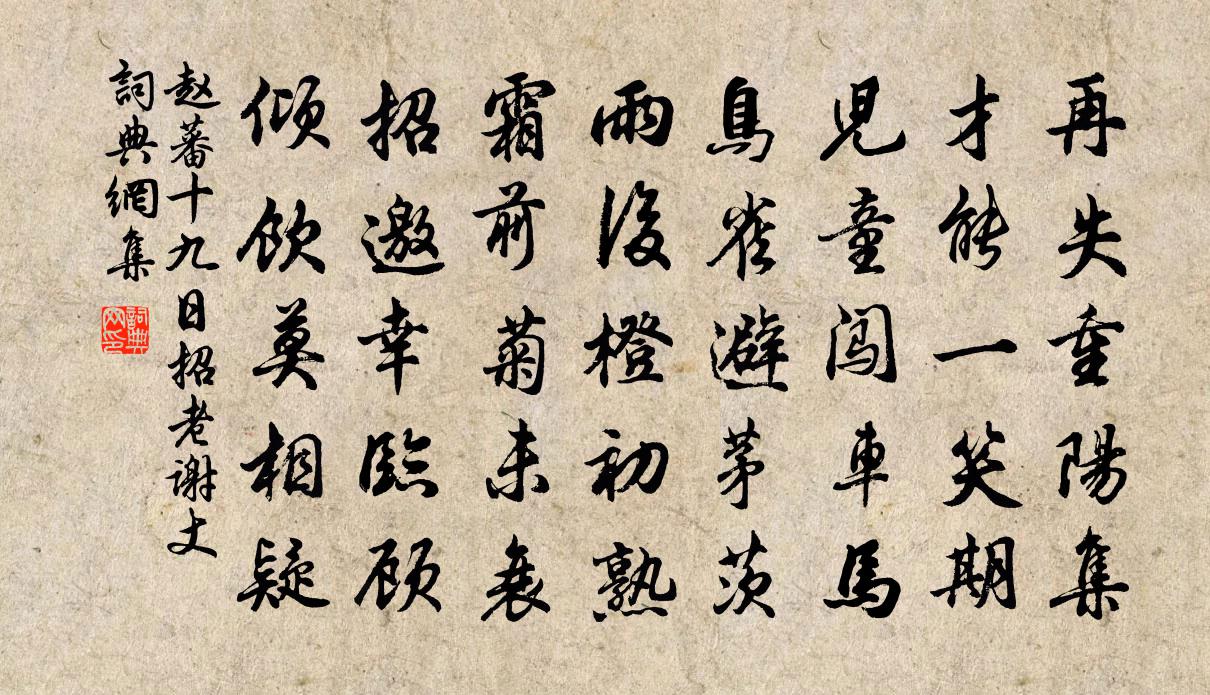 再失重陽集
才能一笑期
児童闖車馬
鳥雀避茅茨
雨後橙初熟
霜前菊未衰
招邀幸臨顾
傾飲莫相疑
赵蕃十九日招老謝丈
詞典網集
詞典网印